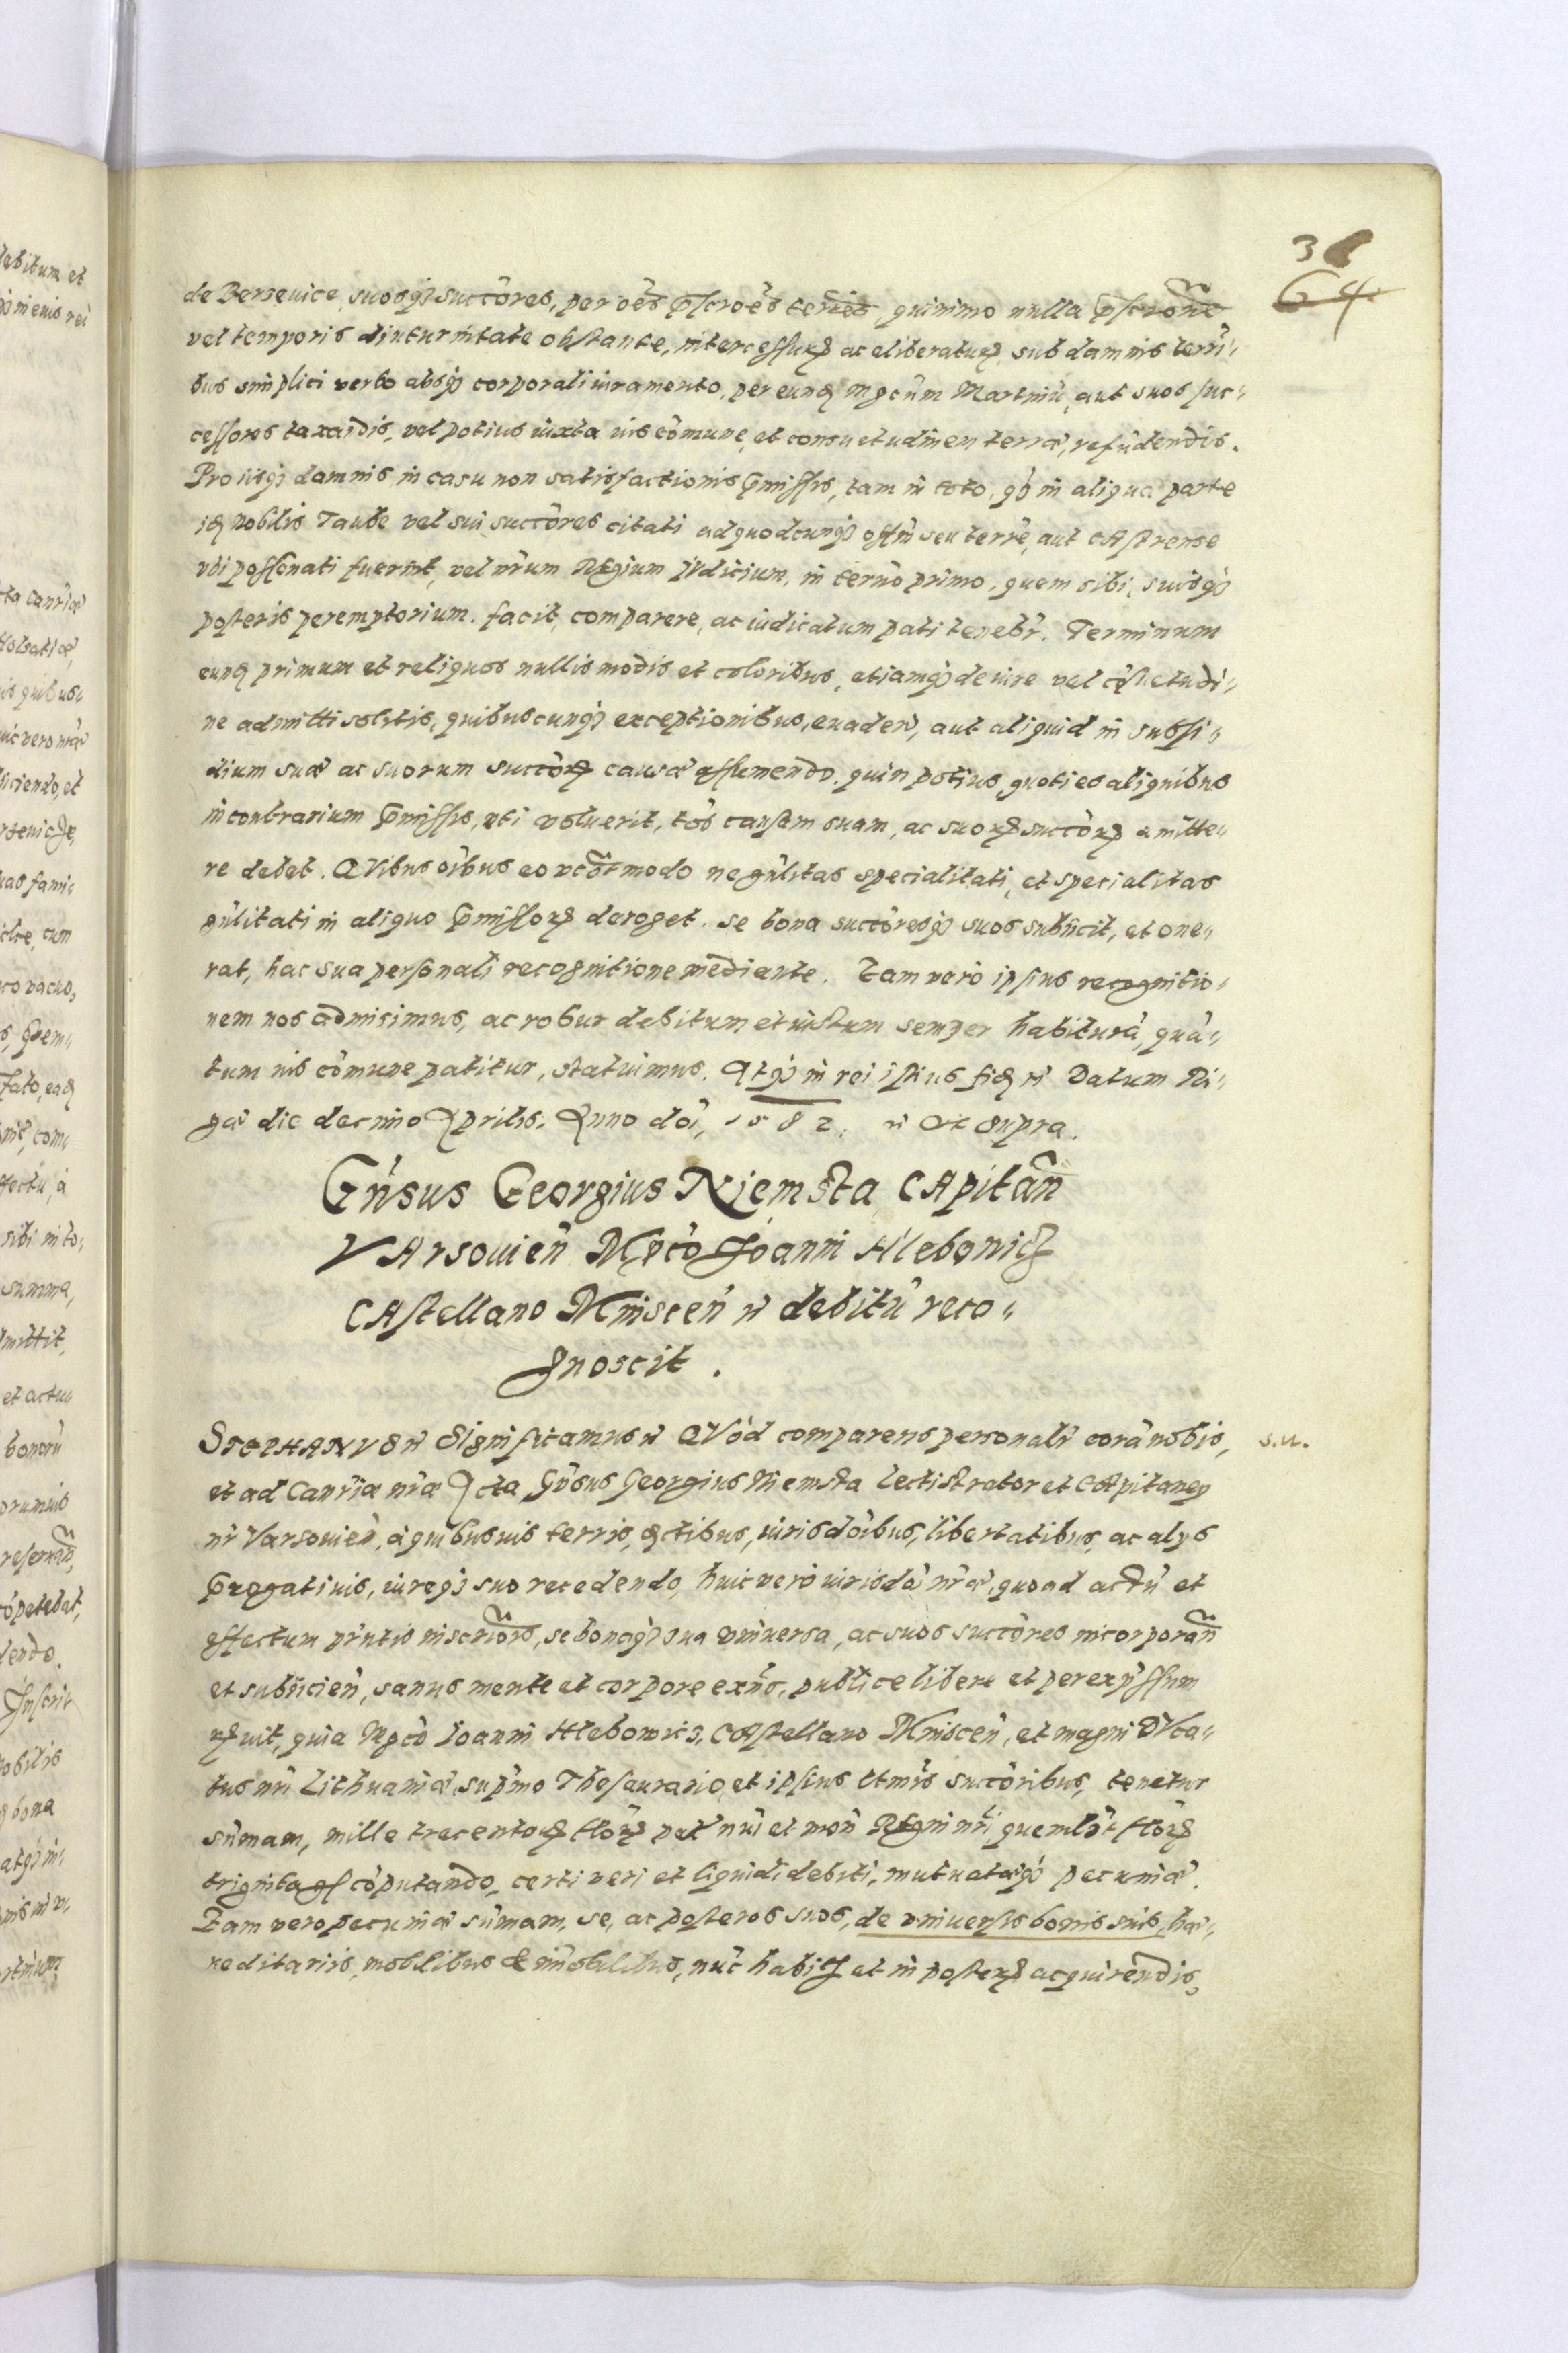 3
64
de Berzeuice, suosq; succōres, per oēs pscrōēs terrēs quinimo nulla pscrone
vel temporis diuturnitate obstante, intercessur ac eliberatur, sub damnis terri,,
bus simplici verbo absq; corporali iuramento, per eund Mgcūm Martinū, aut suos suc,,
cessores taxādis, vel potius iuxta ius cōmune, et consuetudinem terræ, refūdendis.
Pro iisq; damnis in casu non satisfactionis pmissis, tam in toto, q; in aliqua parte
id Nobilis Taube vel sui succōres citati ad quodcunq; offm seu terrē, aut CAstrense
vbi possonati fuerint, vel nrūm Regium Judicium, in terno primo, quem sibi, suisq;
posteris peremptorium facit, comparere, ac iudicatum pati tenebr. Terminum
eund primum et reliquos nullis modis et coloribus, etiamq; de iure vel cōsuetudi,,
ne admitti solitis, quibuscunq; exceptionibus, euadere, aut aliquid in subsi,,
dium suæ ac suorum succōr causæ assumendo. quin potius, quoties aliquibus
in contrarium pmissis, vti voluerit, tōs causam suam, ac suor succōr amitte,,
re debet. QVibus oībus eo vcst modo ne gnlitas specialitati, et specialitas
gnlitati in aliquo pmissor deroget. se bona succōresq; suos subiicit, et one,,
rat, hac sua personali recognitione mediante. Eam verò ipsius recognitio,,
nem nos admisimus, ac robur debitum et iustum semper habiturā, quā,,
tum ius cōmune patitur, statuimus. Atq; in rei istius fid et Datum Ri,,
gæ die decimo Aprilis. Anno doī, 1582. et Vt supra.
Gn̄sus Georgius Niemsta CApitān
VArsouień Mgcō Joanni Hlebowicz
CAstellano Minsceń et debitū reco,,
gnoscit.
STEPHANVS et Significamus et QVòd comparens personalr corā nobis,
s.u.
et ad Canrīæ nræ Acta Gn̄sus Georgius Niemsta Lectistrator et CApitaneus
nr Varsouień, à quibusuis terris, Actibus, iurisdoībus, libertatibus, ac alys
progatiuis, iureq; suo recedendo, huic verò iurisdō nræ, quoad actū et
effectum pn̄tis inscriōis, se bonaq; sua vniuersa, ac suos succōres incorporān
et subiicień, sanus mente et corpore exn̄s, publice libere et per expssum
recuit, quia Mgcō Joanni Hlebowicz, CAstellano Minsceń, et magni DVca,,
tus nri Lithuaniæ, supmo Thesaurario, et ipsius ltmis succōribus, tenetur
sūmam, mille trecentor flor pol nūi et moñ Regni nri, quemlbt flor
triginta gs cōputando, certi veri et liquidi debiti, mutuatæq; pecuniæ.
Eam vero pecuniæ sūmam, se, ac posteros suos, de vniuersis bonis suis, hæ,,
reditariis, mobilibus & imobilibus, nūc habits et in poster acquirendis,